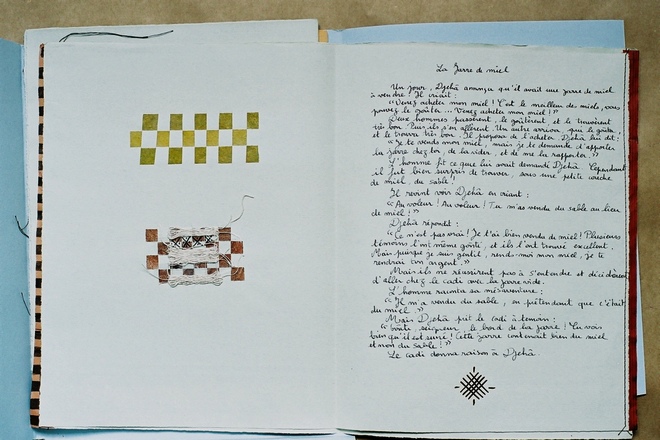 La Jarre de miel
Un jour, Djehâ annonça qu'il avait une jarre de miel
à vendre. Il criait :
"Venez acheter mon miel ! C'est le meilleur des miels, vous
pouvez le goûter... Venez acheter mon miel !"
Deux hommes passèrent, le goûtèrent, et le trouvèrent
très bon. Puis ils s'en allèrent. Un autre arriva, qui le goûta
et le trouva très bon. Il proposa de l'acheter. Djehâ lui dit :
"Je te vends mon miel, mais je te demande d'apporter
la jarre chez toi, de la vider, et de me la rapporter."
L'homme fit ce que lui avait demandé Djehâ. Cependant
il fut bien surpris de trouver, sous une petite couche
de miel, du sable !
Il revint voir Djehâ en criant :
"Au voleur ! Au voleur ! Tu m'as vendu du sable au lieu
de miel !"
Djehâ répondit :
"Ce n'est pas vrai ! Je t'ai bien vendu du miel ! Plusieurs
témoins l'ont même goûté, et ils l'ont trouvé excellent.
Mais puisque je suis gentil, rends-moi mon miel, je te
rendrai ton argent."
Mais ils ne réussirent pas à s'entendre et décidèrent
d'aller chez le cadi avec la jarre vide.
L'homme raconta sa mésaventure :
"Il m'a vendu du sable, en prétendant que c'était
du miel."
Mais Djehâ prit le cadi à témoin :
"Goûte, seigneur, le bord de la jarre ! Tu vois
bien qu'il est sucré ! Cette jarre contenait bien du miel
et non du sable !"
Le cadi donna raison à Djehâ.